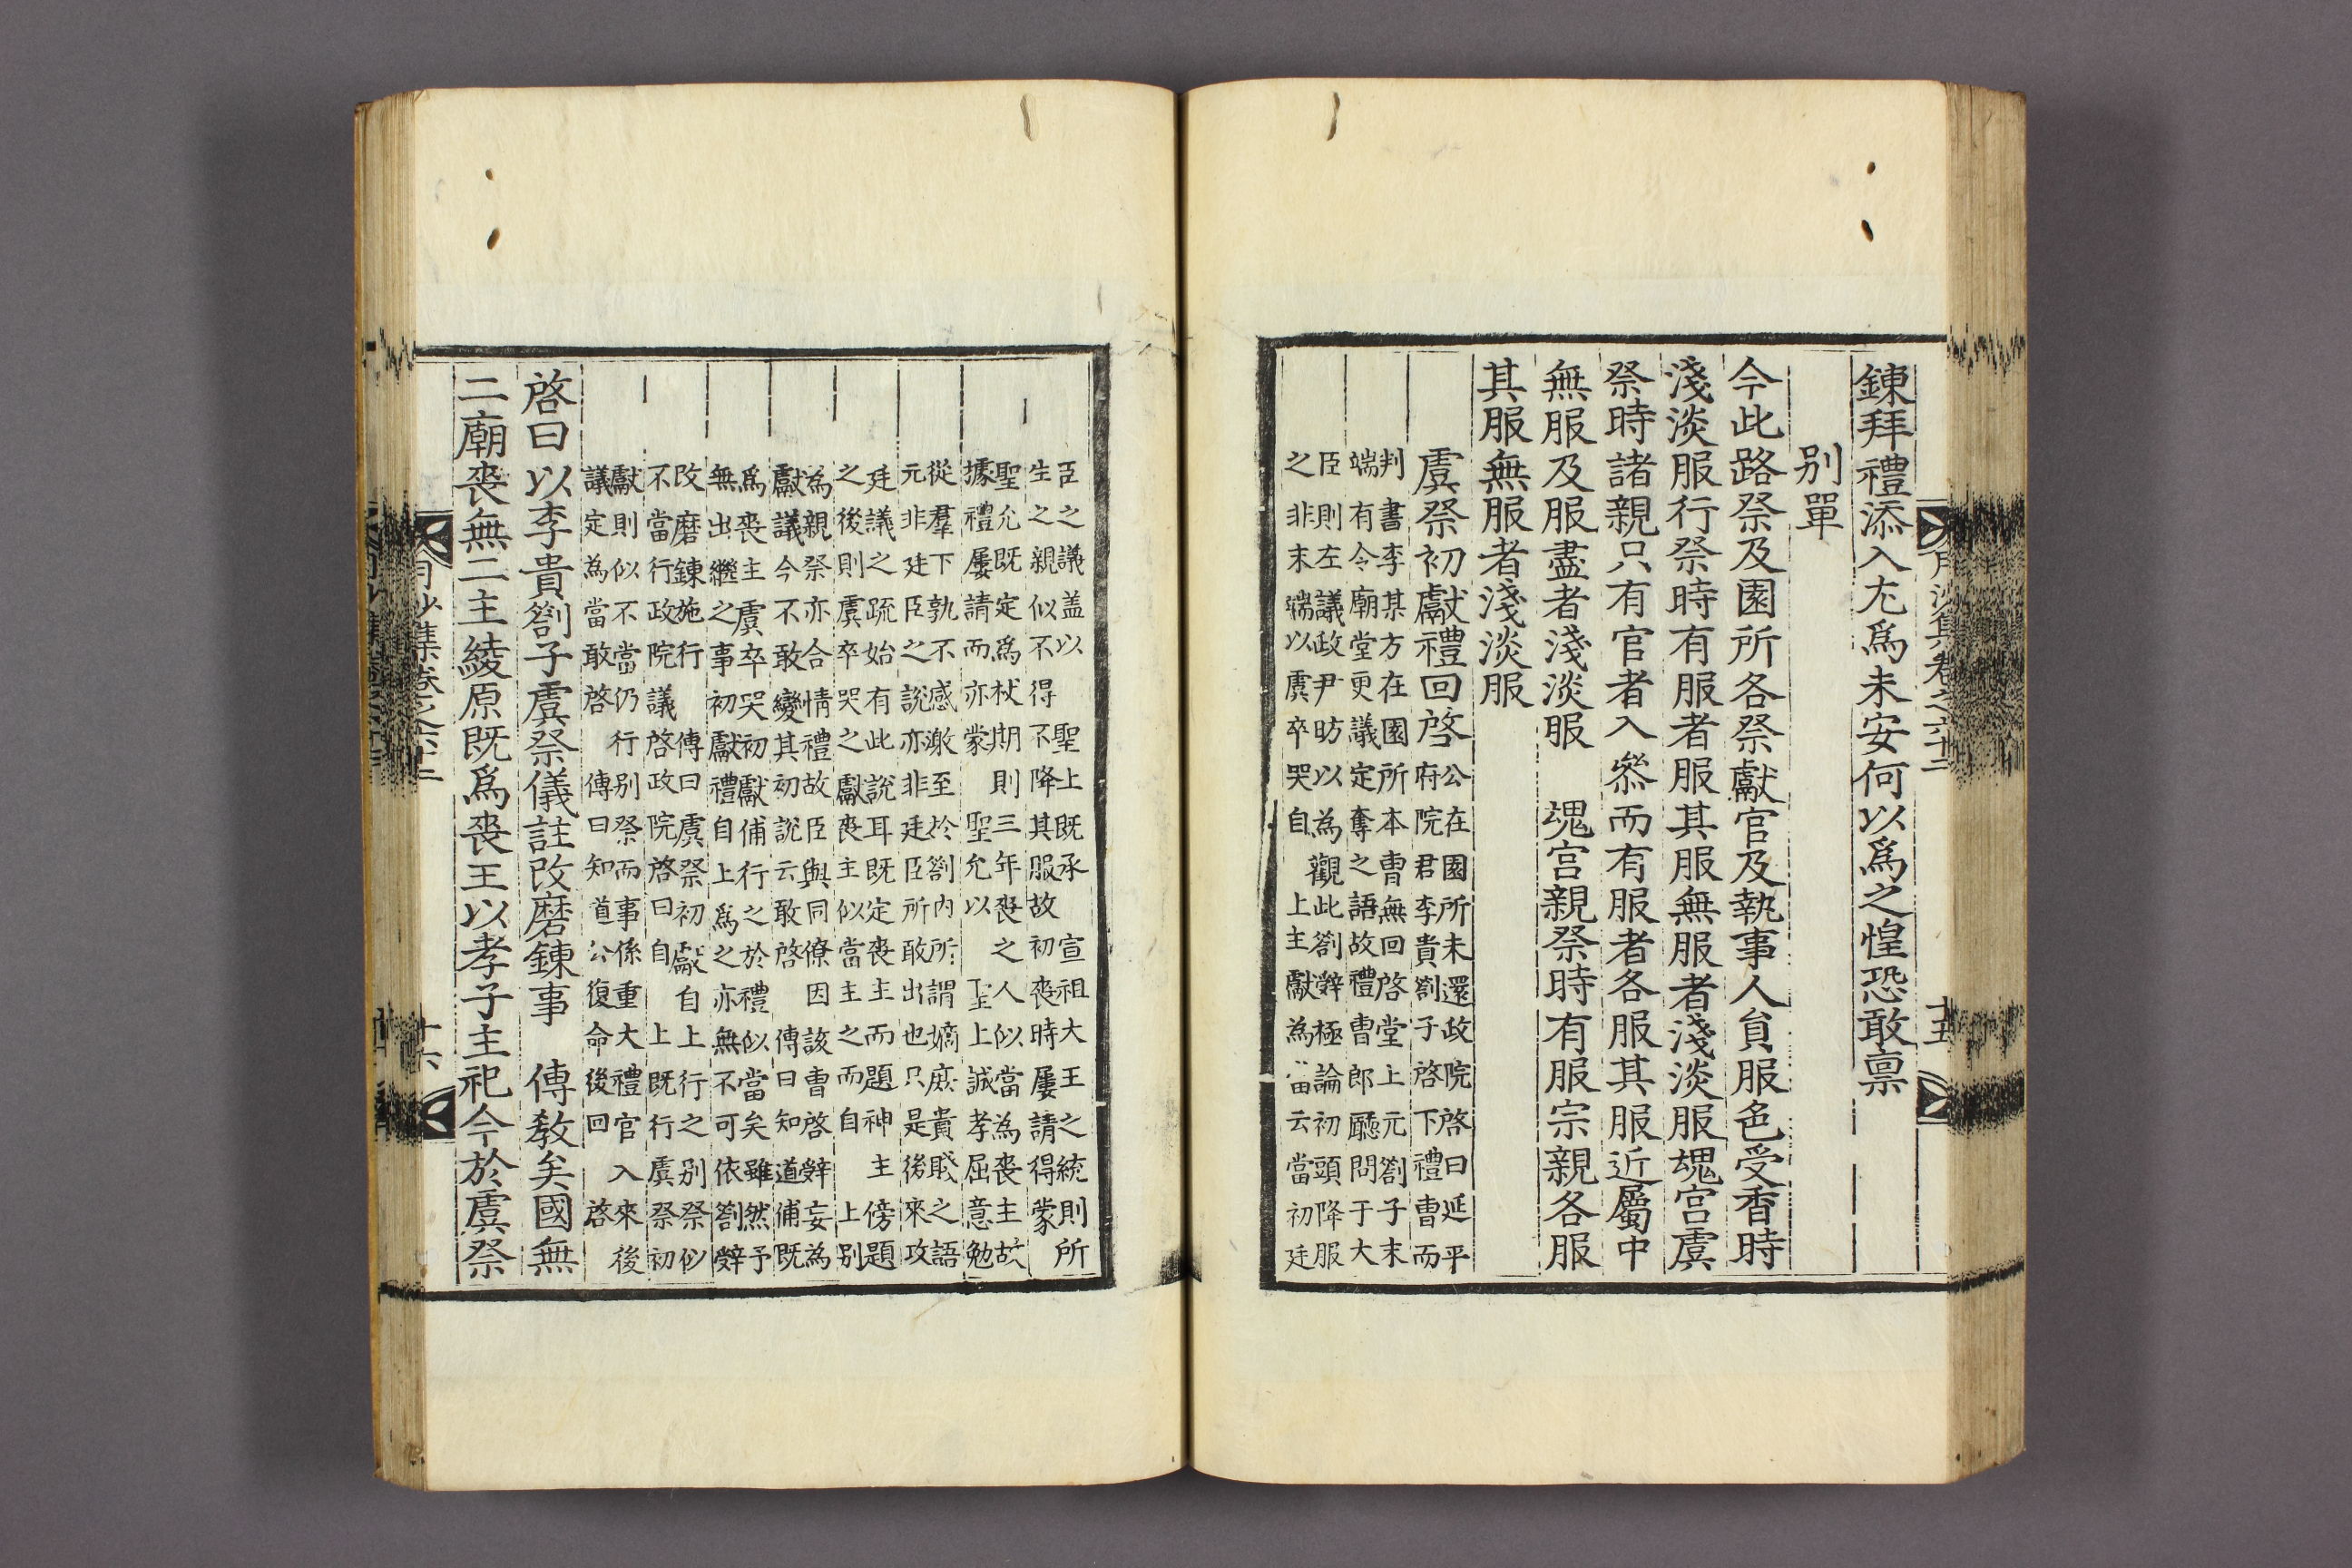 鍊拜禮添入尤爲未安何以爲之惶恐敢禀
別單
今此路祭及園所各祭獻官及執事人員服色受香時
淺淡服行祭時有服者服其服無服者淺淡服魂宮虞
祭時諸親只有官者入叅而有服者各服其服近屬中
無服及服盡者淺淡服 魂宮親祭時有服宗親各服
其服無服者淺淡服
虞祭初獻禮回啓
公在園所未還政院啓曰延平
府院君李貴箚子啓下禮曹而
判書李某方在園所本曹無回啓堂上元箚子末
端有令廟堂更議定奪之語故禮曹郎廳問于大
臣則左議政尹昉以為觀此箚辭極論初頭降服
之非末端以虞卒哭自 上主獻為當云當初廷
月沙集卷之六十二
十五
臣之議盖以 聖上既承 宣祖大王之統則所
生之親似不得不降其服故初喪時屢請得蒙
聖允既定爲杖期則三年喪之人似當為喪主故
據禮屢請而亦蒙 聖允以 聖上誠孝屈意勉
從羣下孰不感激至於箚內所謂嫡庶貴賤之語
元非廷臣之說亦非廷臣所敢出也只是後來攻
廷議之疏始有此說耳既定喪主而題神主傍題
之後則虞卒哭之獻喪主似當主之而自 上別
為親祭亦合情禮故臣與同僚因該曹啓辭妄為
獻議今不敢變其初說云敢啓 傳曰知道俌既
爲喪主虞卒哭初獻俌行之於禮似當矣雖然予
無出繼之事初獻禮自上爲之亦無不可依箚辭
改磨鍊施行 傳曰虞祭初獻自上行之別祭似
不當行政院議啓政院啓曰自 上既行虞祭初
獻則似不當仍行別祭而事係重大禮官入來後
議定為當敢啓 傳曰知道公復命後回 啓
啓曰以李貴箚子虞祭儀註改磨鍊事 傳敎矣國無
二廟喪無二主綾原既爲喪主以孝子主祀今於虞祭
月沙集卷之六十二
十六